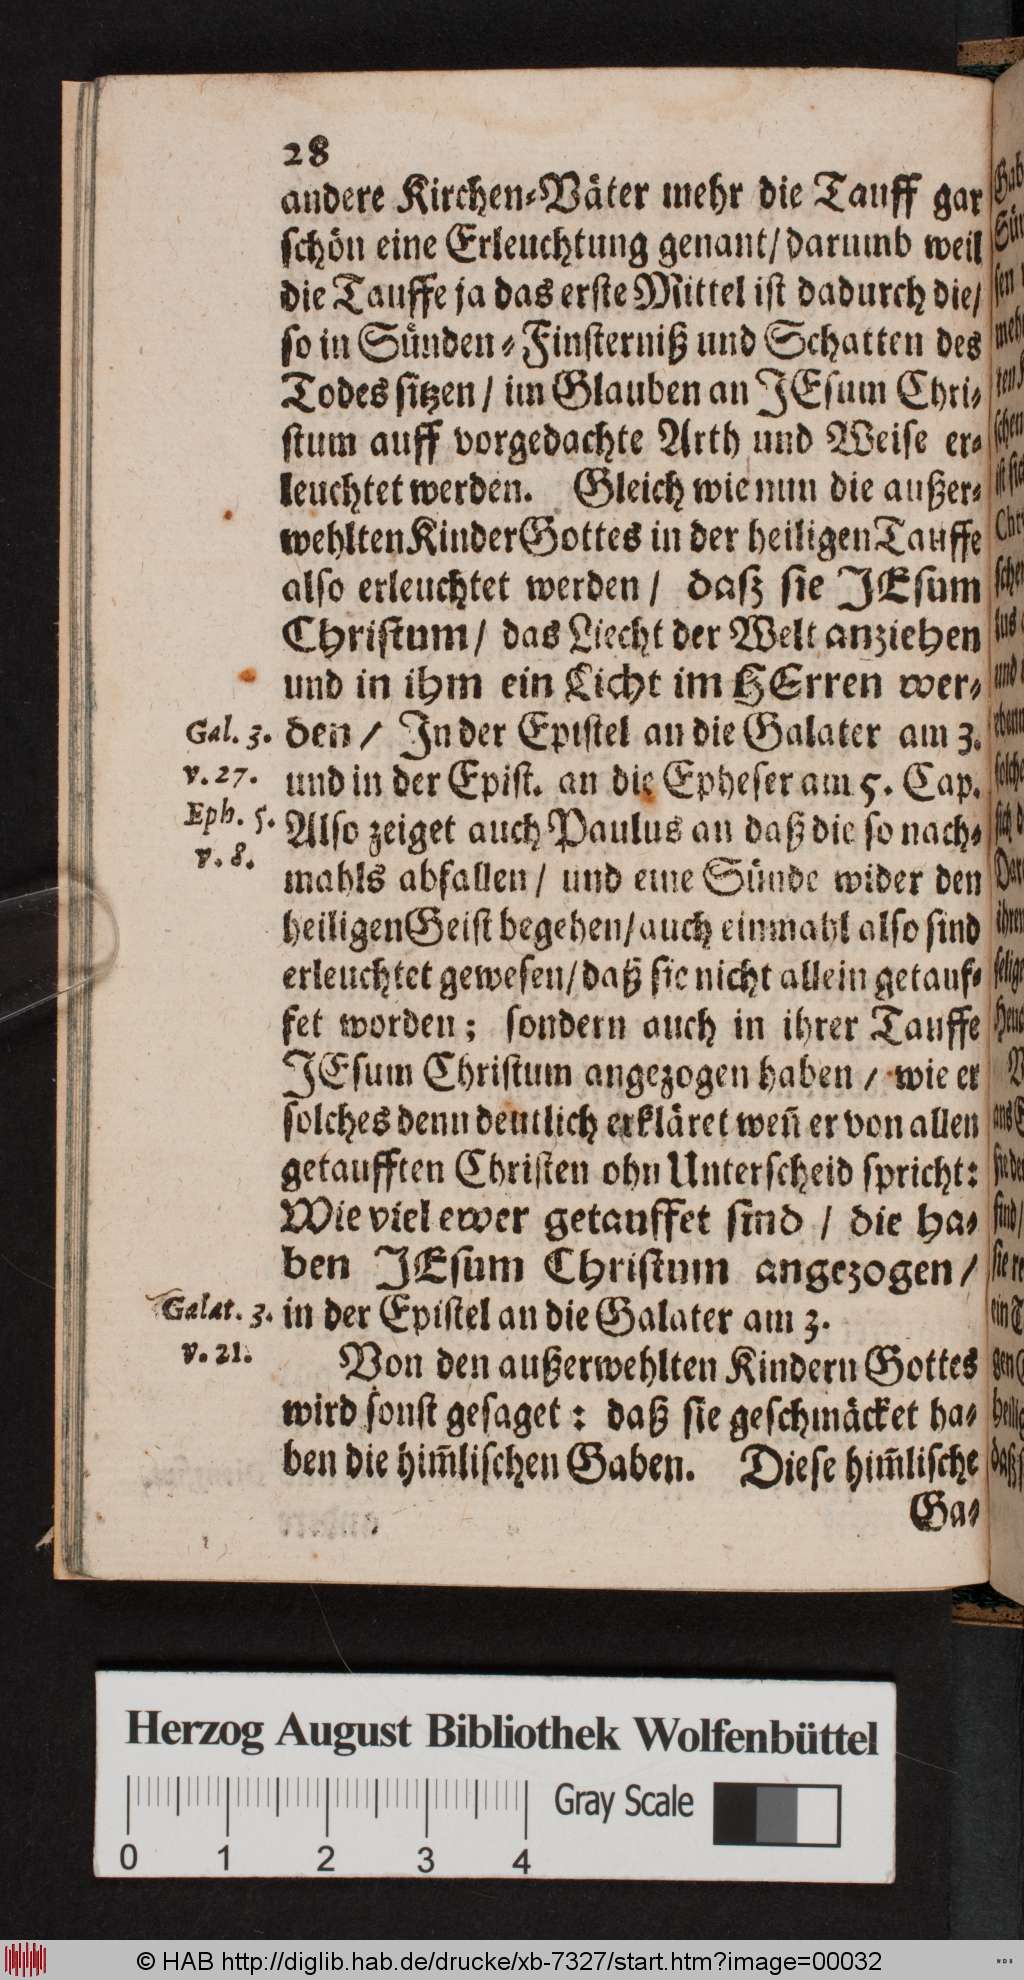 28
andere Kirchen-Väter mehr die Tauff gar
schön eine Erleuchtung genant/darumb weil
die Tauffe ja das erste Mittel ist dadurch die/
so in Sünden-Finsterniß und Schatten des
Todes sitzen/ im Glauben an JEsum Chri-
stum auff vorgedachte Arth und Weise er-
leuchtet werden. Gleich wie nun die außer-
wehlten Kinder Gottes in der heiligen Tauffe
also erleuchtet werden/ daß sie JEsum
Christum/ das Liecht der Welt anziehen
und in ihm ein Licht im HErren wer-
Gal. 3. den/ In der Epistel an die Galater am 3.
v. 27. und in der Epist. an die Epheser am 5. Cap.
Eph. 5. Also zeiget auch Paulus an daß die so nach-
v. 8. mahls abfallen/ und eine Sünde wider den
heiligen Geist begehen/auch einmahl also sind
erleuchtet gewesen/daß sie nicht allein getauf-
fet worden; sondern auch in ihrer Tauffe
JEsum Christum angezogen haben/ wie er
solches denn deutlich erkläret weñ er von allen
getaufften Christen ohn Unterscheid spricht:
Wie viel ewer getauffet sind/ die ha-
ben JEsum Christum angezogen/
Galat. 3. in der Epistel an die Galater am 3.
v. 21. Von den außerwehlten Kindern Gottes
wird sonst gesaget: daß sie geschmäcket ha-
ben die him̃lischen Gaben. Diese him̃lische
Ga-
Herzog August Bibliothek Wolfenbüttel
Gray Scale
0 1 2 3 4
© HAB http://diglib.hab.de/drucke/xb-7327/start.htm?image=00032